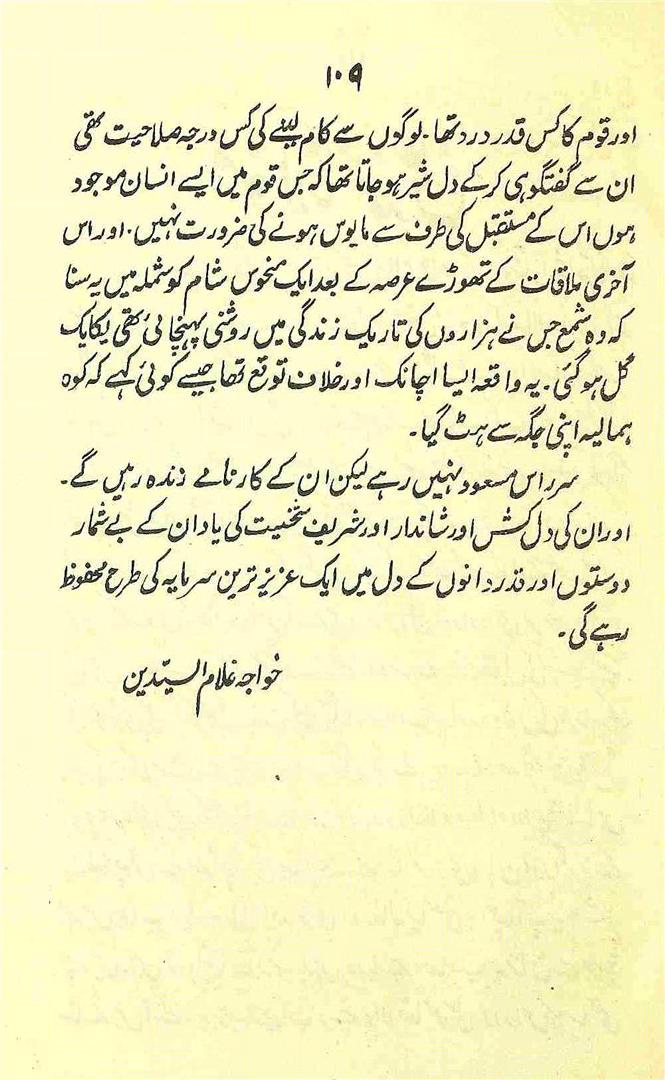 ۱۰۹
اور قوم کا کس قدر درد تھا۔ لوگوں سے کام لینے کی کس درجہ صلاحیت تھی
ان سے گفتگو ہی کر کے دل شیر ہو جاتا تھا کہ جس قوم میں ایسے انسان موجود
ہوں اس کے مستقبل کی طرف سے مایوس ہونے کی ضرورت نہیں۔ اور اس
آخری ملاقات کے تھوڑے عرصہ کے بعد ایک منحوس شام کو شملہ میں یہ سنا
کہ وہ شمع جس نے ہزاروں کی تاریک زندگی میں روشنی پہنچائی تھی یکایک
گل ہو گئی۔ یہ واقعہ ایسا اچانک اور خلاف توقع تھا جیسے کوئی کہے کہ کوہ
ہمالیہ اپنی جگہ سے ہٹ گیا۔
سر راس مسعود نہیں رہے لیکن ان کے کارنامے زندہ رہیں گے۔
اور ان کی دل کش اور شاندار اور شریف شخصیت کی یاد ان کے بے شمار
دوستوں اور قدر دانوں کے دل میں ایک عزیز ترین سرمایہ کی طرح محفوظ
رہے گی۔
خواجہ غلام السیّدین